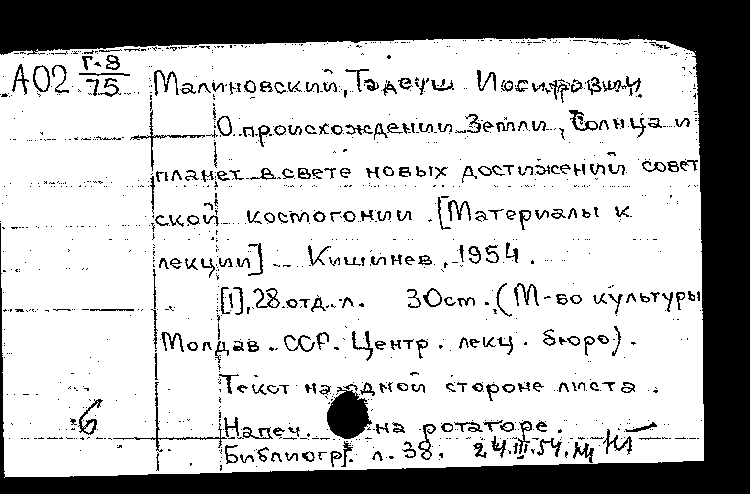 А02 Г-8/75 Малиновский, Тадеуш Иосифович
О происхождении Земли, Солнца и
планет в свете новых достижений совет
ской космогонии. [Материалы к
лекции] Кишинев, 1954.
[1], 28 отд. л. 30 см. (М-во культуры
Молдав. ССР. Центр. лекц. бюро).
Текст на одной стороне листа.
6 Напеч. на ротаторе.
Библиогр. л. 38. 24.III.54.